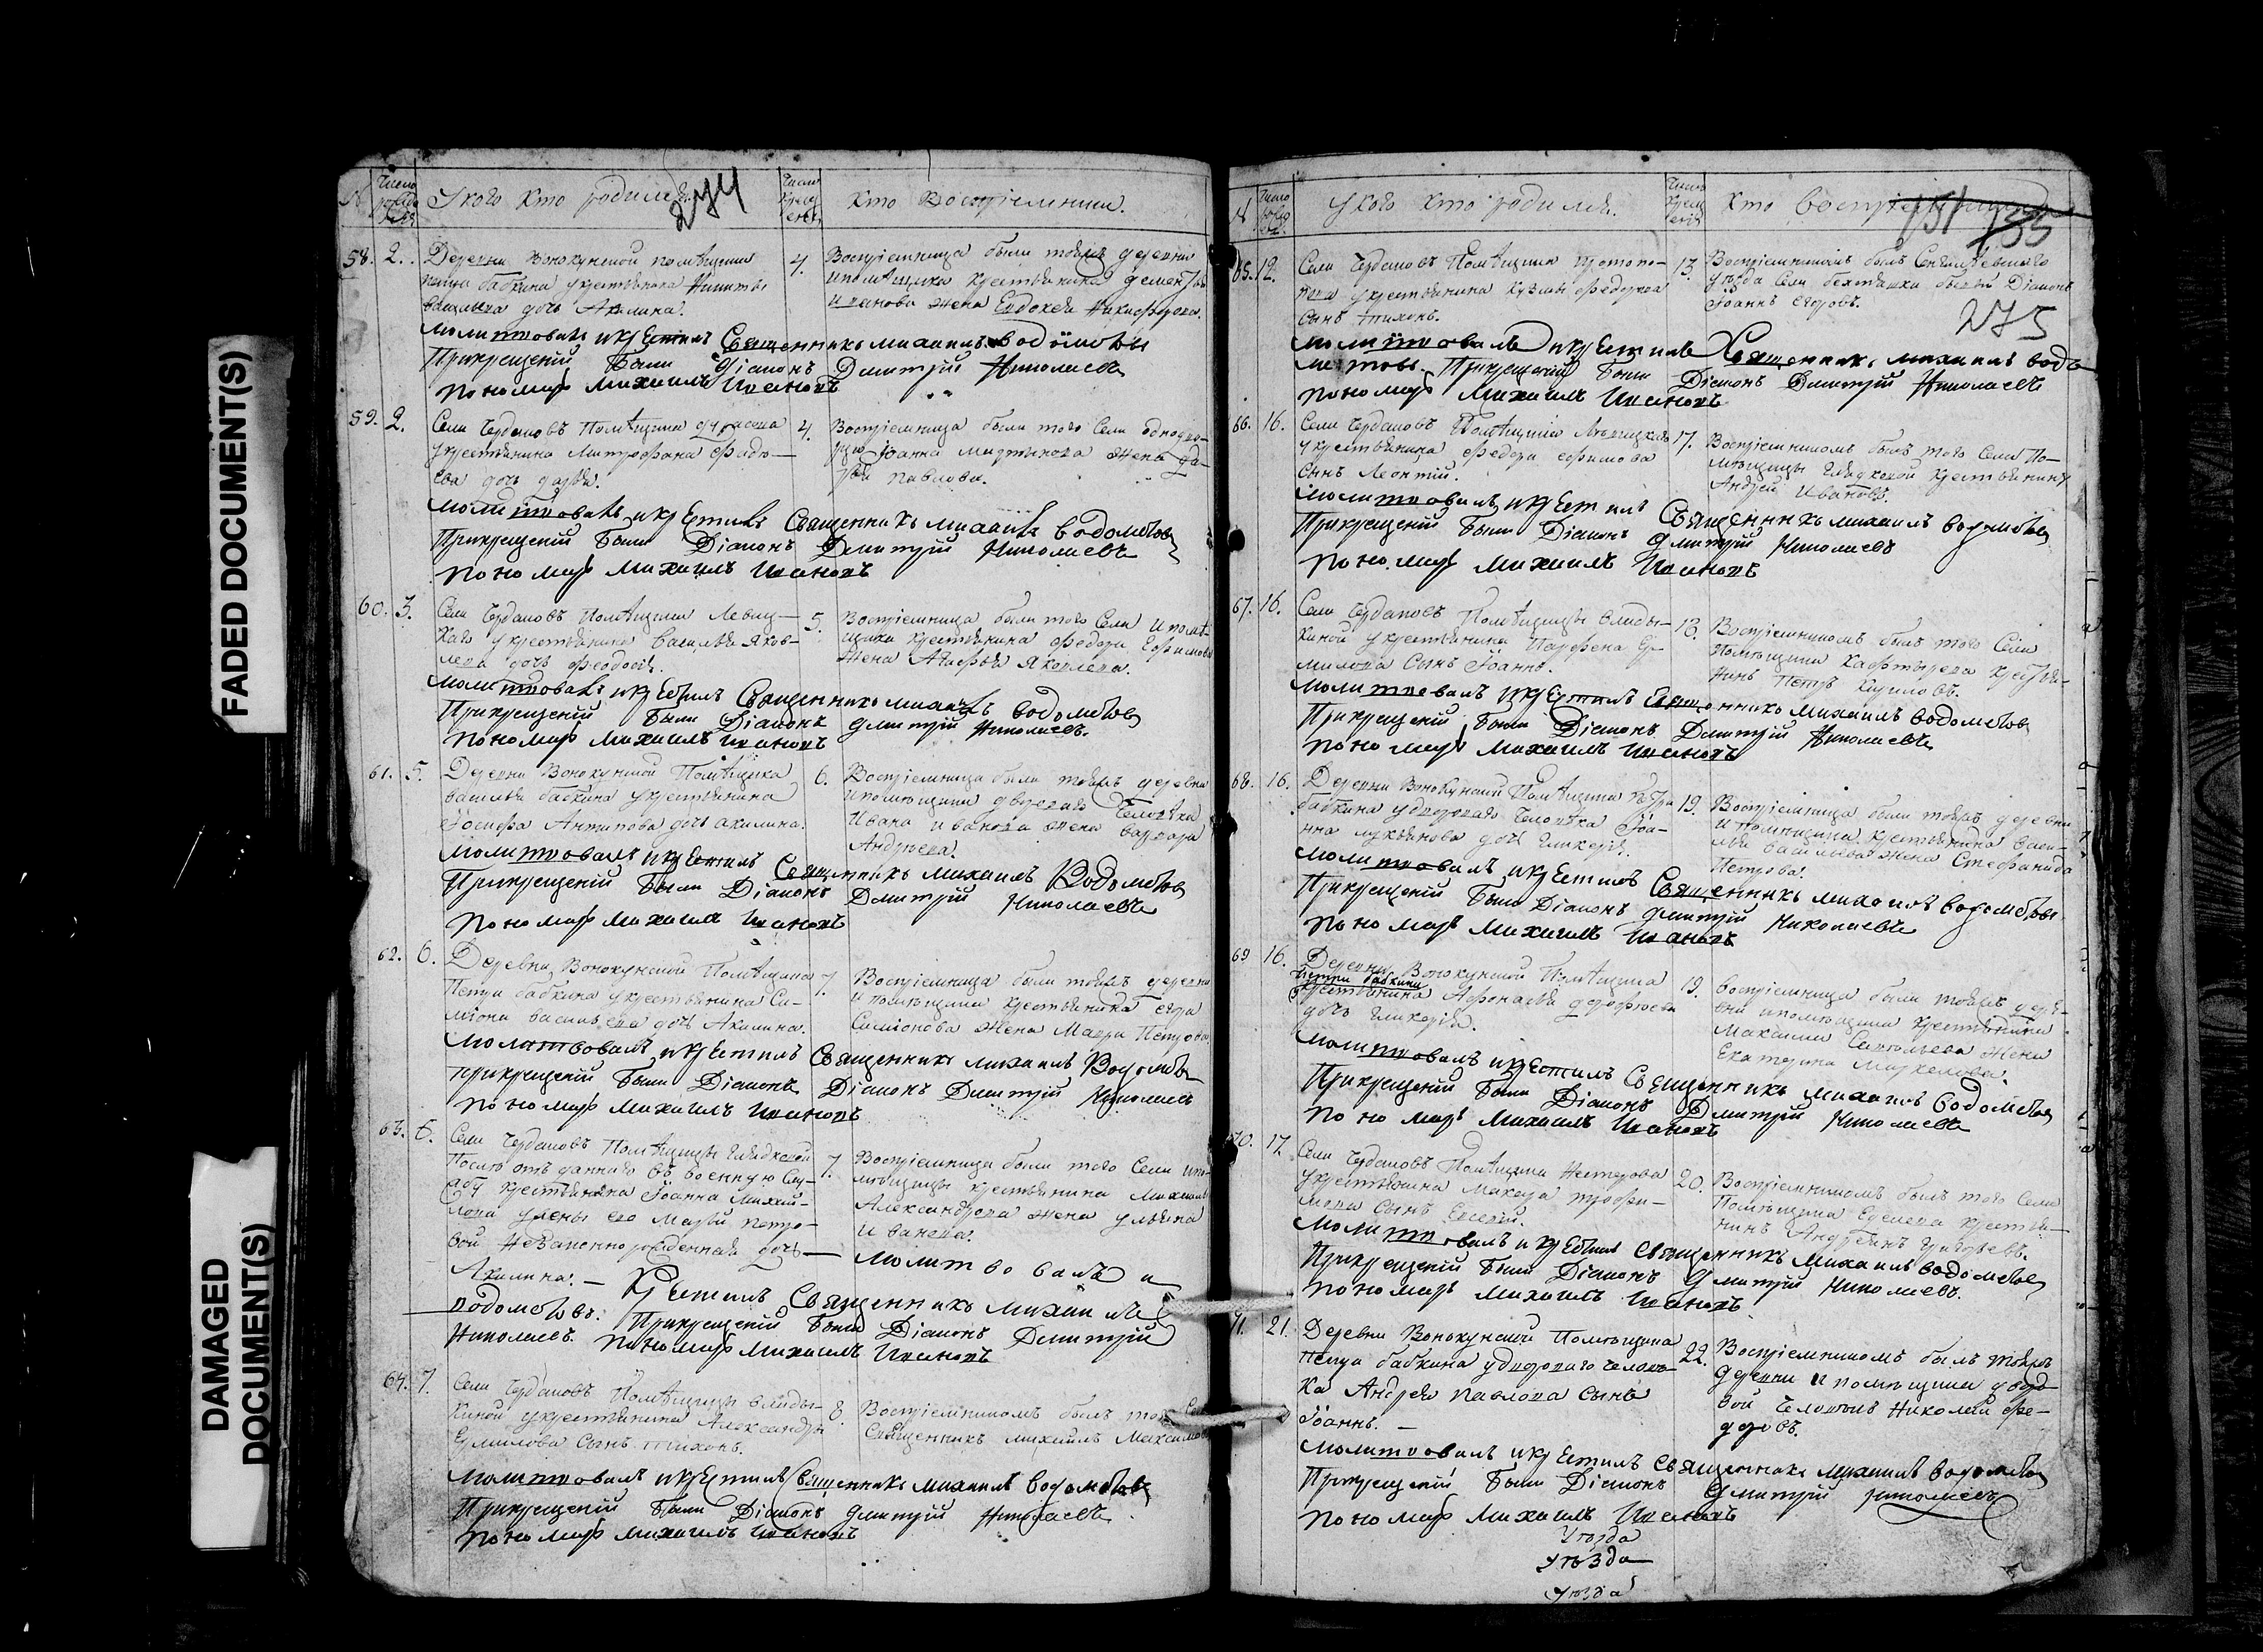 FADED DOCUMENT(S)
DAMAGED
DOCUMENT(S)
№
Число рожде
У кого кто родился.
274
Число крещ
Кто Воспріемники.
58. 2. Деревни Вонокунской помѣщика
бабкина укрестьянина Никиты
дочь Акилина.
4. Воспріемница была тояжъ деревни
ипомѣщика крестьянина
Иванова жена Евдокея Никифорова.
молитвовалъ икрестилъ Священникъ михаилъ водомѣтовъ
Прикрещеніи были Діаконъ Дмитрій Николаевъ
пономарь Михаилъ Ивановъ
59. 2. Села Чердаковъ Помѣщика
укрестьянина Митрофана
ева дочь дарья.
4. Воспріемница была того Села однодво-
рца Іоанна мартынова жена да-
рья павлова.
молитвовалъ икрестилъ Священникъ михаилъ водомѣтовъ
Прикрещеніи были Діаконъ Дмитрій Николаевъ
пономарь Михаилъ Ивановъ
60. 3. Села Чердаковъ Помѣщика Левиц-
каго укрестьянина Василья Яков-
лева дочь Феодосія.
5. Воспріемница была того Села ипомѣ-
щика крестьянина Федора Ефимова
жена Агафья Яковлева.
молитвовалъ икрестилъ Священникъ михаилъ водомѣтовъ
Прикрещеніи были Діаконъ дмитрій Николаевъ.
пономарь Михаилъ Ивановъ
61. 5. Деревни Вонокунской Помѣщика
василья бабкина укрестьянина
Іосифа Антипова дочь акилина.
6. Воспріемница была тояжъ деревни
ипомѣщика двороваго Человѣка
Ивана иванова жена варвара
Андреева.
молитвовалъ икрестилъ Священникъ михаилъ Водомѣтовъ
Прикрещеніи были Діаконъ Дмитрій Николаевъ
пономарь Михаилъ Ивановъ
62. 6. Деревни Вонокунской Помѣщика
Петра бабкина укрестьянина Си-
міона васильева дочь Акилина.
7. Воспріемница была тояжъ деревни
ипомѣщика крестьянина егора
Симіонова жена Мавра Петрова
молитвовалъ икрестилъ Священникъ михаилъ Водомѣтовъ
прикрещеніи были Діаконъ Діаконъ Дмитрій Николаевъ
пономарь Михаилъ Ивановъ
63. 6. Села Чердаковъ Помѣщицы Глядковой
После отъданнаго въ военную Слу-
жбу крестьянина Іоанна Михай-
лова ужены его Марьи петро-
вой Незаконно рожденная дочь
Акилина.
7. Воспріемница была того Села ипо-
мѣщицы крестьянина Михаила
Александрова жена ульяна
иванова.
молитвовалъ и
Крестилъ Священникъ михаилъ
водомѣтовъ. Прикрещеніи были Діаконъ Дмитрій
Николаевъ. пономарь Михаилъ Ивановъ
64. 7. Села Чердаковъ Помѣщицы влады-
киной укрестьянина Александра
Ермилова Сынъ тихонъ.
8. Воспріемникомъ былъ того
Священникъ михаилъ Максимовъ
молитвовалъ икрестилъ Священникъ михаилъ водомѣтовъ
Прикрещеніи были Діаконъ дмитрій Николаевъ
пономарь Михаилъ Ивановъ
№
У кого кто родился.
Кто воспріемники
151 135
275
65. 12. Села Чердаковъ Помѣщика протопо-
пова укрестьянина Кузмы Федорова
Сынъ тихонъ.
13. Воспріемникомъ былъ Сенгилеевскаго
уѣзда Села бектяшки бывый Діаконъ
Іоаннъ егоровъ.
молитвовалъ икрестилъ Священникъ михаилъ водо
метовъ. Прикрещеніи были Діаконъ Дмитрій Николаевъ
пономарь Михаилъ Ивановъ
66. 16. Села Чердаковъ Помѣщика Левицкаго
укрестьянина Федора ефимова
Сынъ Леонтій.
17. Воспріемникомъ былъ того Села По-
мѣщицы Глядковой крестьянинъ
Андрей Ивановъ.
молитвовалъ икрестилъ Священникъ михаилъ водомѣтовъ
Прикрещеніи были Діаконъ дмитрій Николаевъ
пономарь Михаилъ Ивановъ
67. 16. Села Чердаковъ Помѣщицы влады-
киной укрестьянина Парфена Ер-
милова Сынъ Іоаннъ.
18. Воспріемникомъ былъ того Села
помѣщика Кафтырева крестья-
нинъ Петръ Кириловъ.
молитвовалъ икрестилъ Священникъ михаилъ водомѣтовъ
Прикрещеніи были Діаконъ Дмитрій Николаевъ
пономарь Михаилъ Ивановъ
68. 16. Деревни Вонокунской Помѣщика Петра
бабкина удвороваго Человѣка Іоа-
нна лукьянова дочь гликерія.
19. Воспріемница была тояжъ деревни
ипомѣщика крестьянина Васи-
лья васильева жена Стефанида
Петрова.
молитвовалъ икрестилъ Священникъ михаилъ водомѣтовъ
Прикрещеніи были Діаконъ дмитрій Николаевъ
пономарь Михаилъ Ивановъ
69 16. Деревни Вонокунской Помѣщика
Петра бабкина
укрестьянина Афонасья дорофеева
дочь гликерія.
19. Воспріемница была тояжъ дерев-
ни ипомѣщика крестьянина
Максима Савельева жена
Екатерина Маркелова.
молитвовалъ икрестилъ Священникъ михаилъ водомѣтовъ
Прикрещеніи были Діаконъ Дмитрій Николаевъ
пономарь Михаилъ Ивановъ
70. 17. Села Чердаковъ Помѣщика Нестерова
укрестьянина Макара трофи-
мова Сынъ Евсевій.
20. Воспріемникомъ былъ того Села
Помѣщика крестья-
нинъ Григорьевъ.
молитвовалъ икрестилъ Священникъ михаилъ водомѣтовъ
Прикрещеніи были Діаконъ дмитрій Николаевъ.
пономарь Михаилъ Ивановъ
71. 21. Деревни Вонокунской Помѣщика
Петра бабкина удвороваго человѣ-
ка Андрея павлова Сынъ
Іоаннъ.
22. Воспріемникомъ былъ тояжъ
деревни ипомѣщика дворо-
вой Человѣкъ Николай Фе-
доровъ.
молитвовалъ икрестилъ Священникъ михаилъ водомѣтовъ
Прикрещеніи были Діаконъ Дмитрій Николаевъ
пономарь Михаилъ Ивановъ
Уѣзда
уѣзда
уѣзда